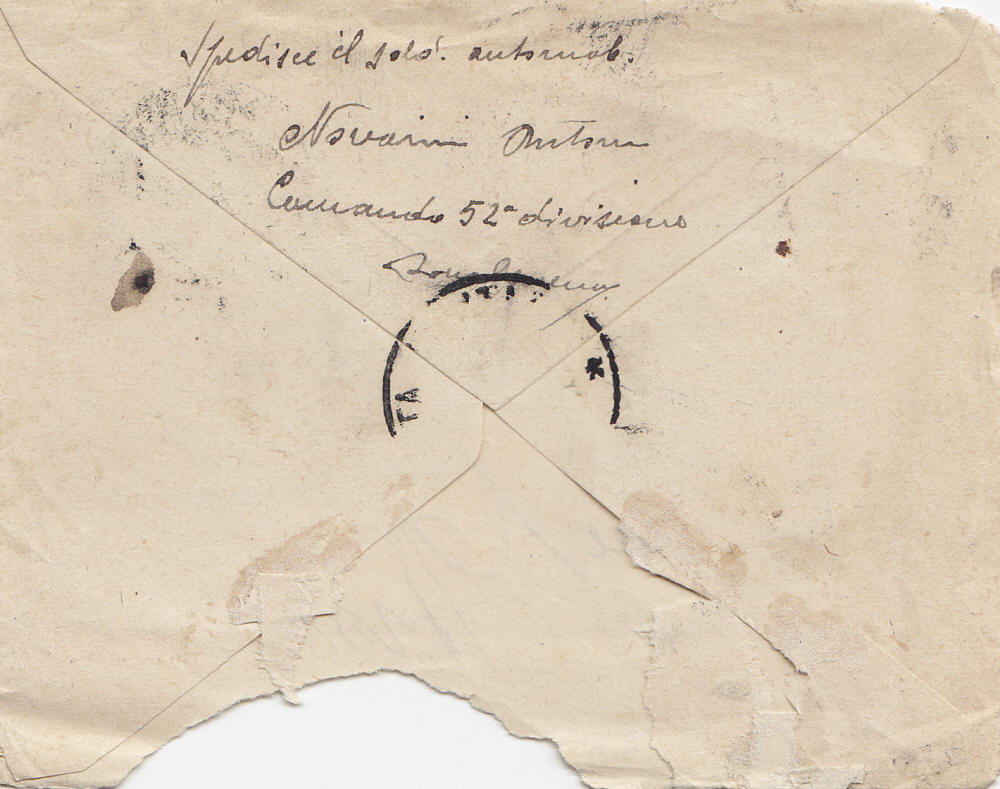 Spedisce il sold. automob.
Novarini Antonio
Comando 52ª divisione
Zona
TA